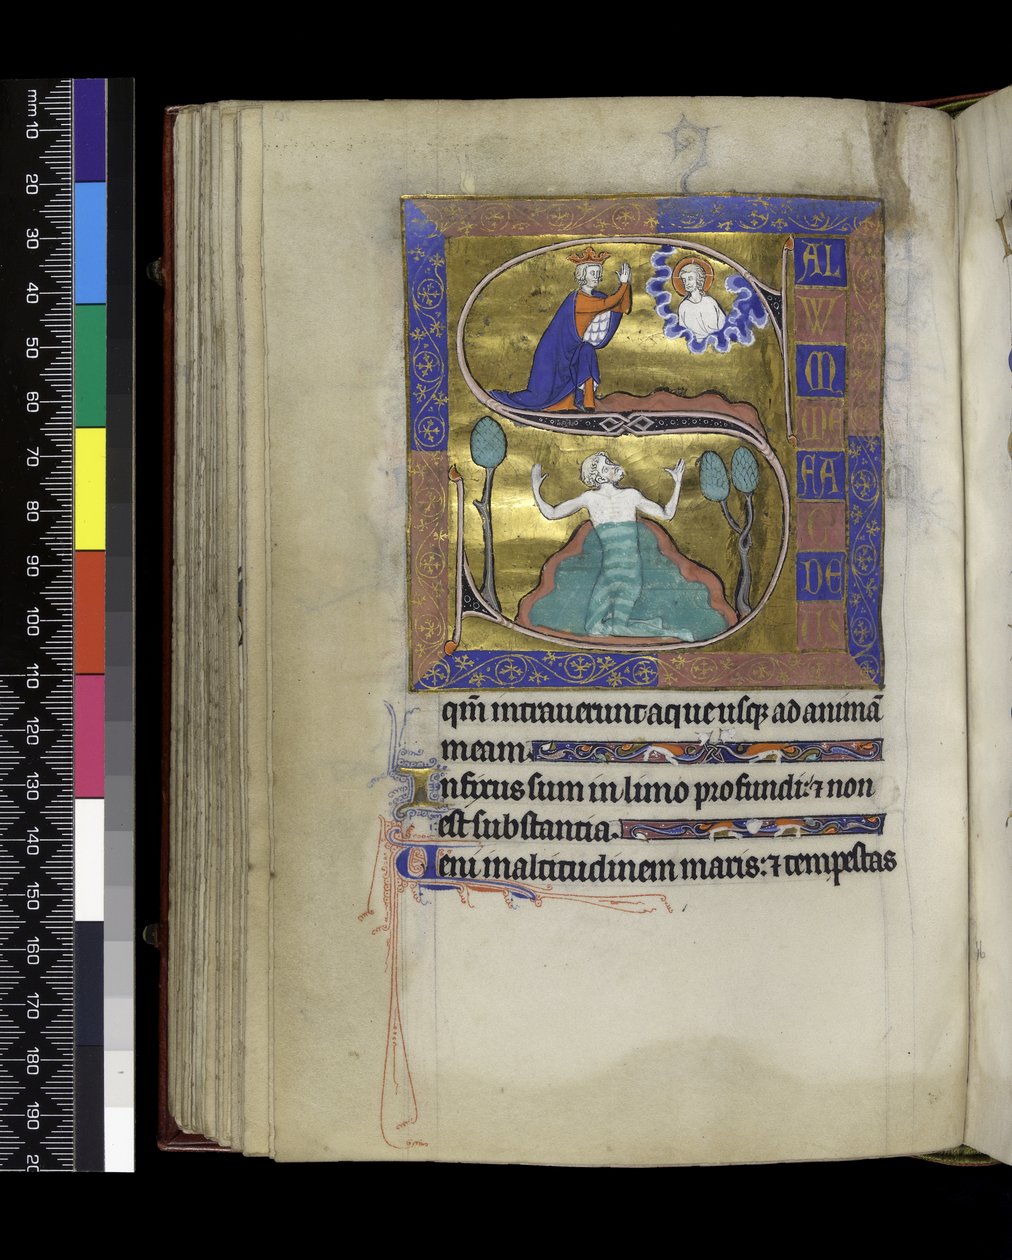 mm 10
20
30
40
50
60
70
80
90
100
110
120
130
140
150
160
170
180
190
S
AL
W
M
ME
FA
C
DE
US
qm̄ intrauerunt aque usqꝫ ad animā
meam.
Infixus sum in limo profundi: ⁊ non
est substantia.
Ueni in altitudinem maris: ⁊ tempestas